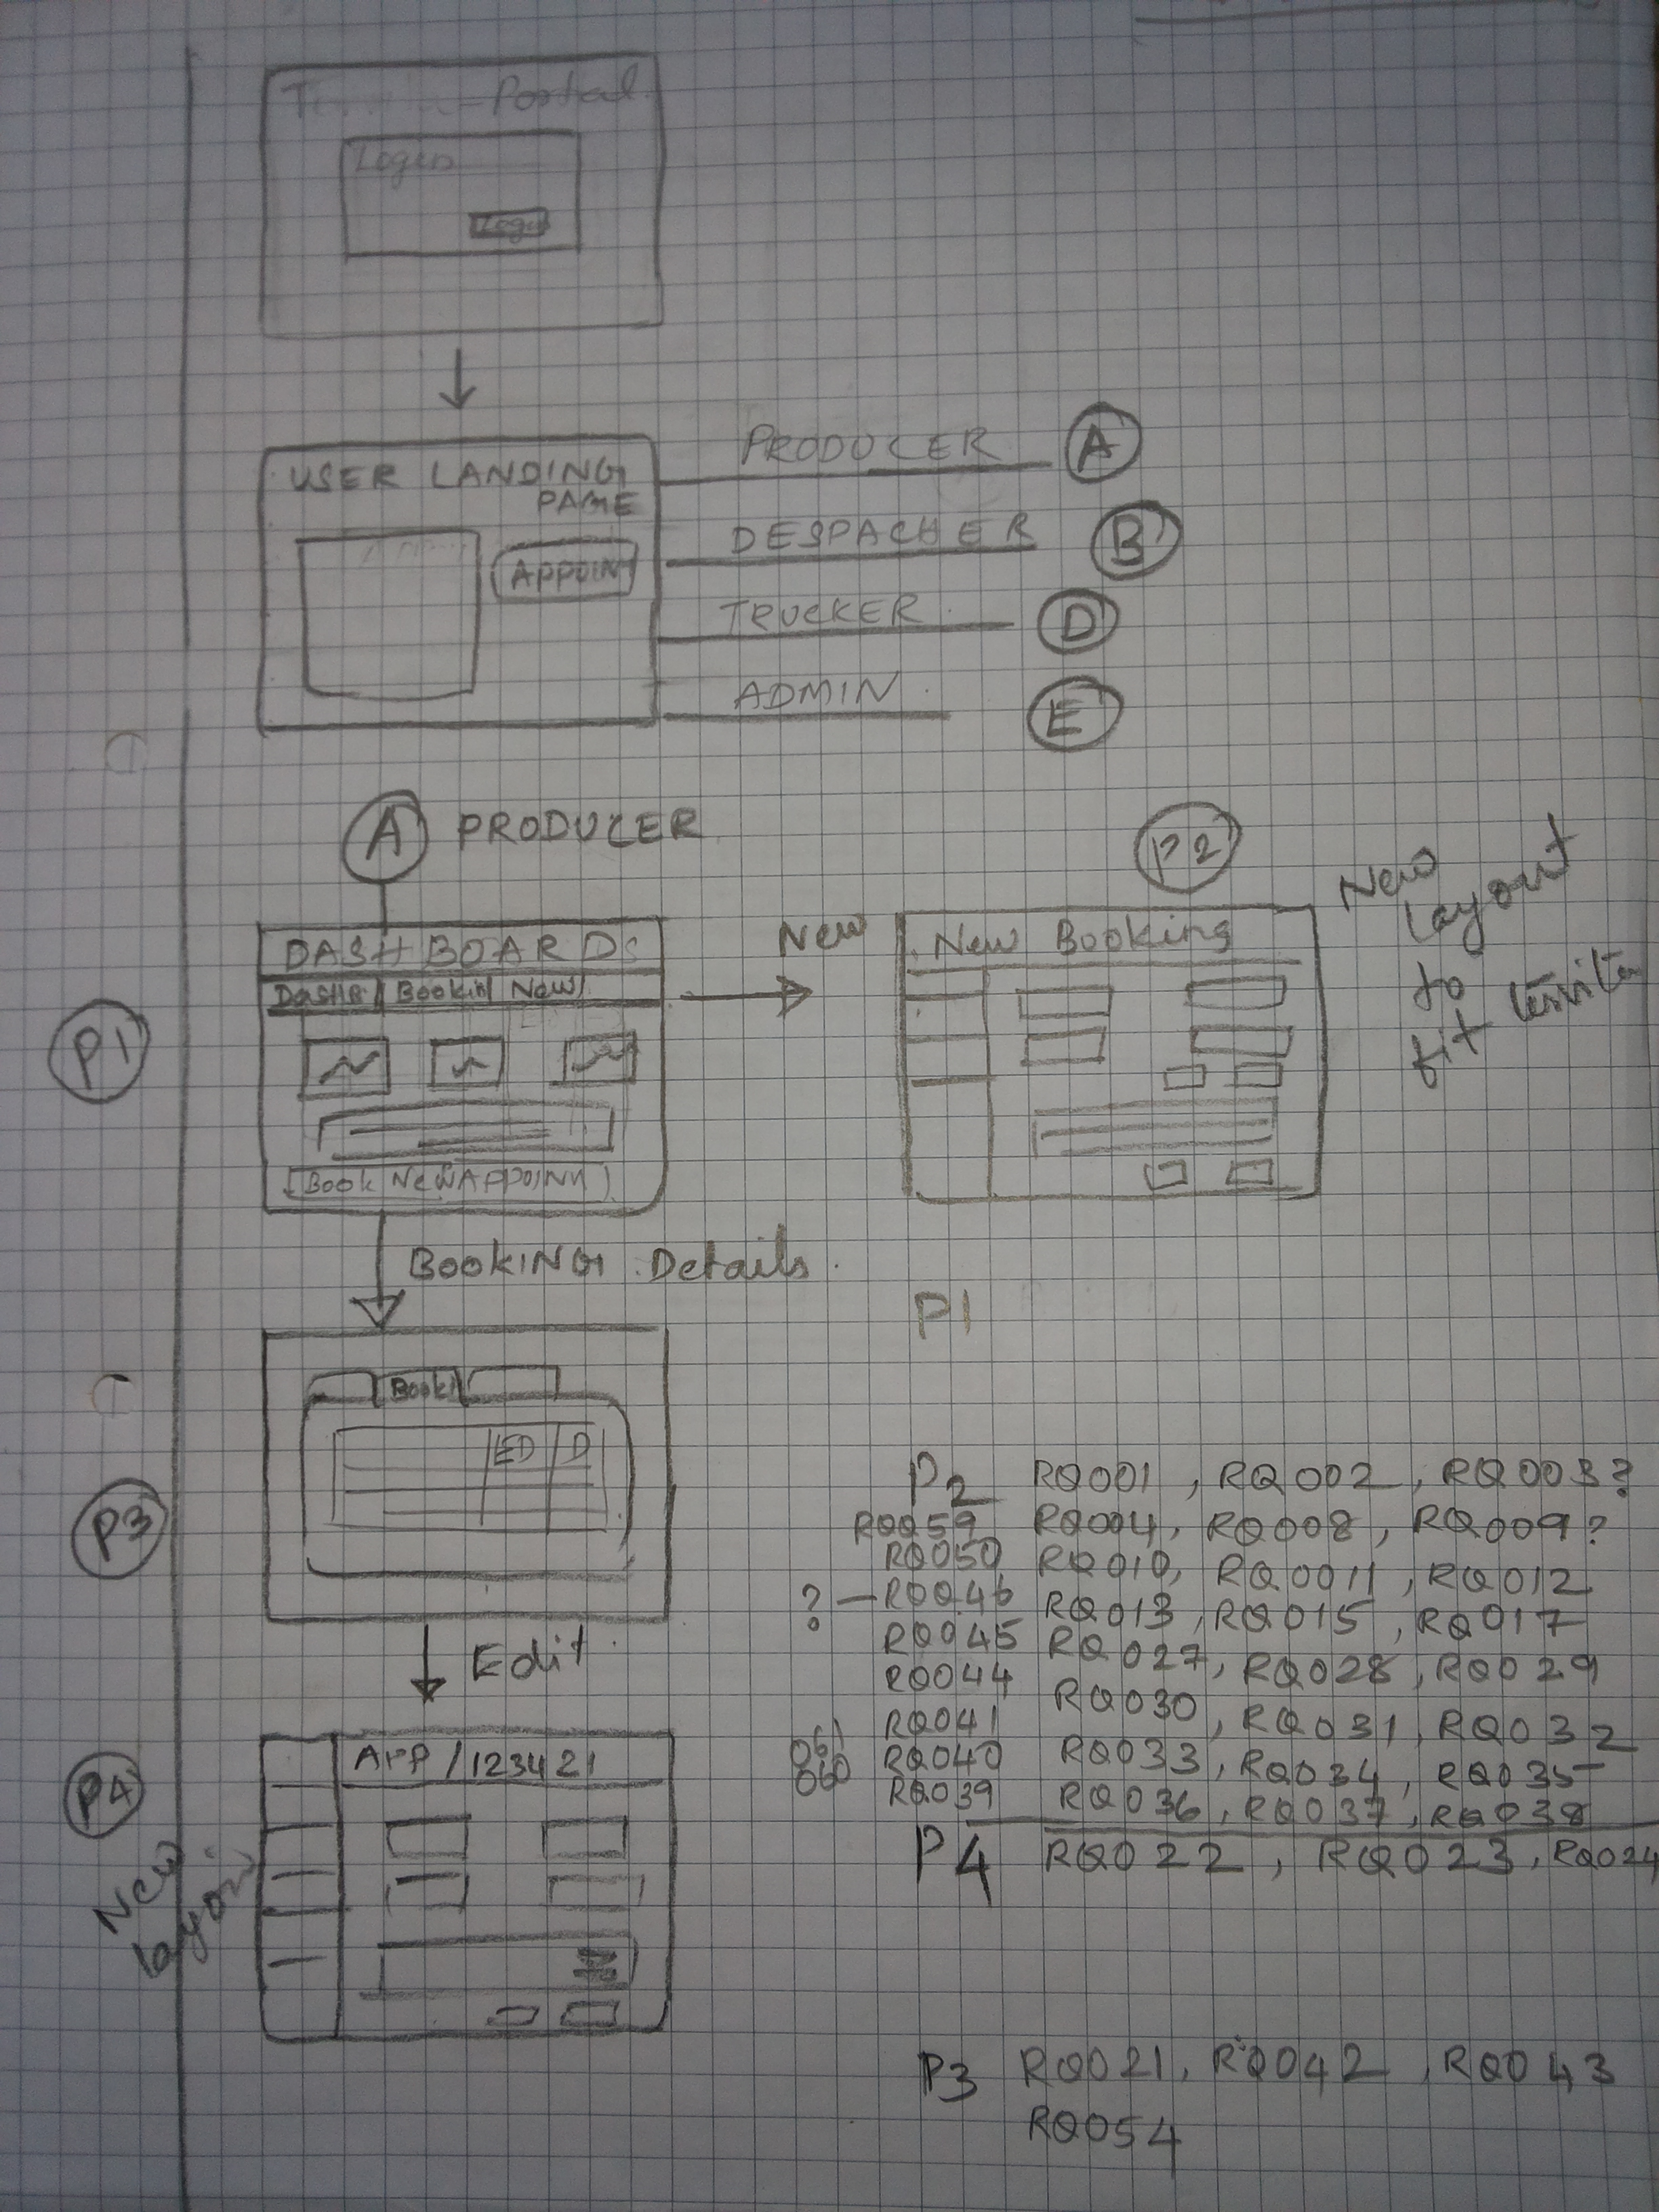 Portal
Login
Login
USER LANDING
PAGE
APPOIN
PRODUCER
A
DESPACHER
B
TRUCKER
D
ADMIN
E
A PRODUCER
P2
New
Layout
to
fit
P1
DASHBOARDS
Dashb Bookin New
Book New APPOINN
New
New Booking
BOOKING Details
P1
P3
Booki
ED D
Edit
P4
New
APP / 123421
P2 RQ001, RQ002, RQ003?
RQ059 RQ004, RQ008, RQ009?
RQ050 RQ010, RQ0011, RQ012
? - RQ046 RQ013, RQ015, RQ017
RQ045 RQ027, RQ028, RQ029
RQ044 RQ030, RQ031, RQ032
RQ041 RQ033, RQ034, RQ035
061 RQ040 RQ036, RQ037, RQ038
060 RQ039
P4 RQ022, RQ023, RQ024
P3 RQ021, RQ042, RQ043
RQ054